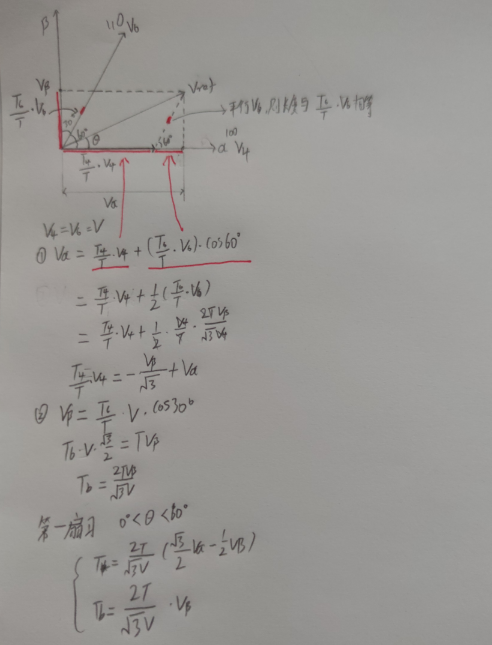 β
110 V6
Vβ
Vref
T6/T · V6
平行V6,则长度与 T6/T · V6 相等
30°
60°
θ
60°
100
α V4
T4/T · V4
Vα
V4=V6=V
① Vα = T4/T · V4 + (T6/T · V6) · cos60°
= T4/T · V4 + 1/2 (T6/T · V6)
= T4/T · V4 + 1/2 · V4/T · 2TVβ/√3V4
T4/T · V4 = - Vβ/√3 + Vα
② Vβ = T6/T · V · cos30°
T6 · V · √3/2 = TVβ
T6 = 2TVβ/√3V
第一扇区 0°<θ<60°
T4 = 2T/√3V (√3/2 Vα - 1/2 Vβ)
T6 = 2T/√3V · Vβ